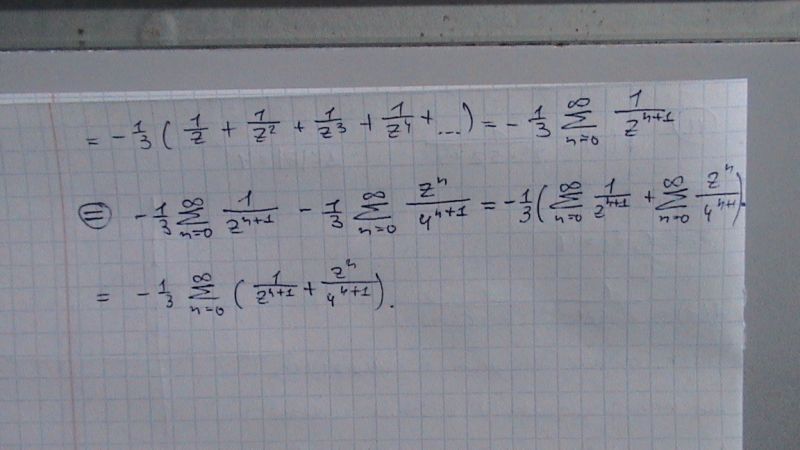 = -1/3 ( 1/z + 1/z² + 1/z³ + 1/z⁴ + ...) = - 1/3 ∑_{n=0}^{∞} 1/z^{n+1}
(=) -1/3 ∑_{n=0}^{∞} 1/z^{n+1} - 1/3 ∑_{n=0}^{∞} z^n/4^{n+1} = -1/3 ( ∑_{n=0}^{∞} 1/z^{n+1} + ∑_{n=0}^{∞} z^n/4^{n+1} ).
= -1/3 ∑_{n=0}^{∞} ( 1/z^{n+1} + z^n/4^{n+1} ).